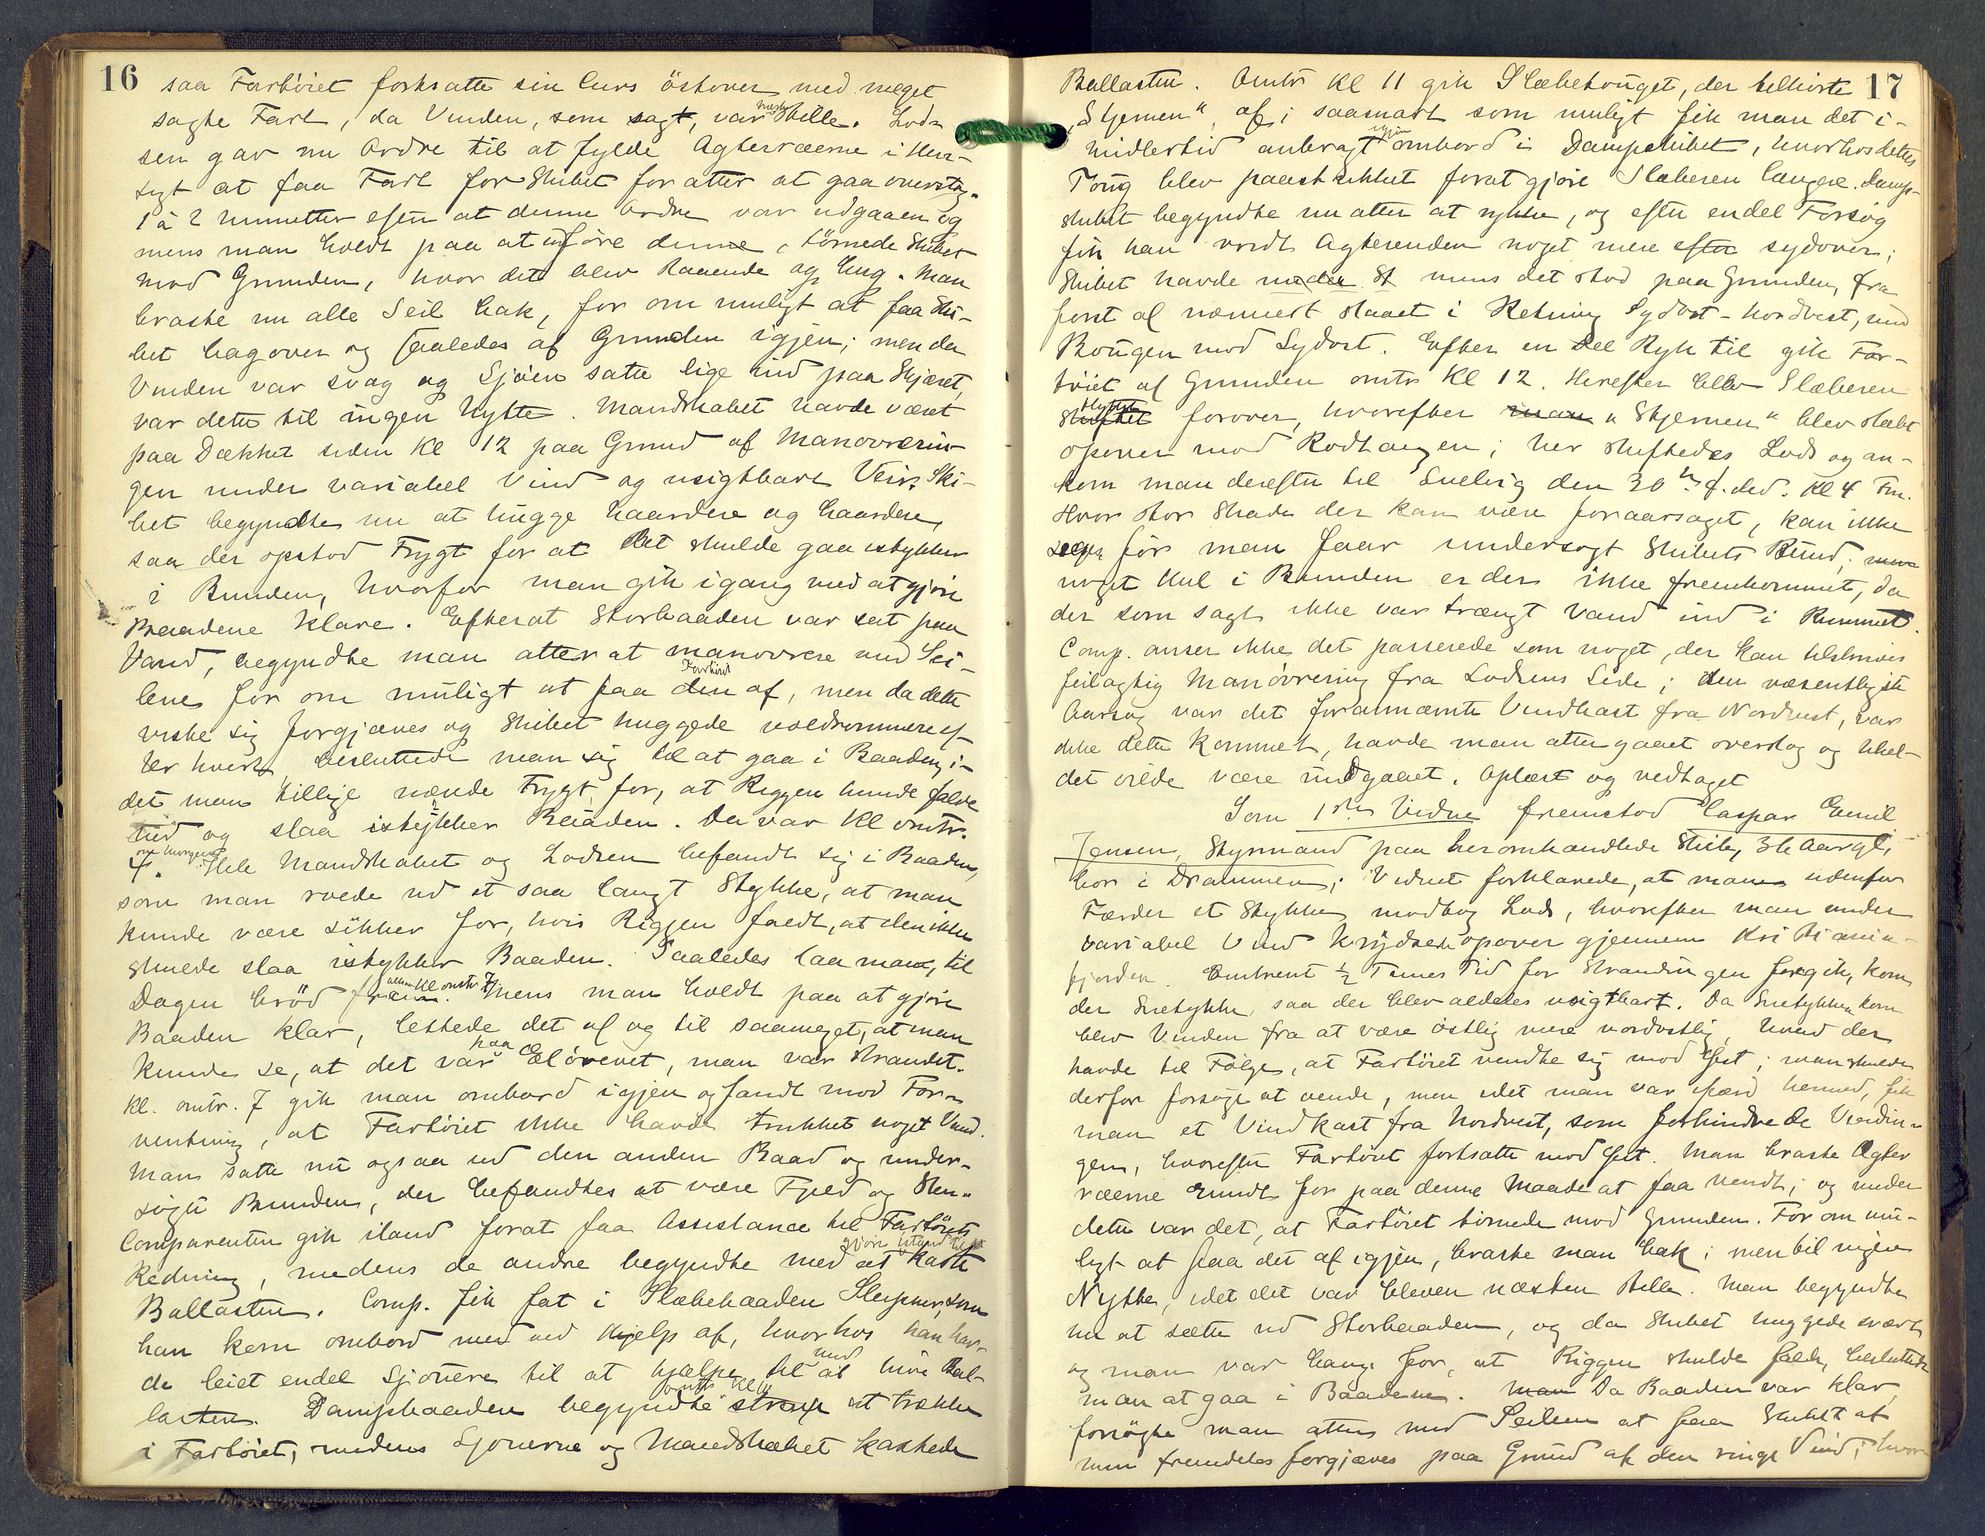 16
saa Fartöiet fortsatte sin Curs östover med meget
sagte Fart, da Vinden, som sagt, var næsten stille. Lod-
sen gav nu Ordre til at fylde Agterræerne i Hen-
sigt at faa Fart for Skibet for atter at gaa overstag.
1 à 2 Minutter efter at denne Ordre var udgaaen og
mens man holdt paa at udføre denne, törnede Skibet
mod Grunden, hvor det blev staaende og hug. Man
braste nu alle Seil bak, for om muligt at faa Ski-
bet bagover og saaledes af Grunden igjen; men da
Vinden var svag og Sjöen satte lige ind paa Skjæret,
var dette til ingen Nytte. Mandskabet havde været
paa Dækket siden Kl 12 paa Grund af Manovrerin-
gen under variabel Vind og usigtbart Veir. Ski-
bet begyndte nu at hugge haardere og haardere,
saa der opstod Frygt for at det skulde gaa istykker
i Bunden, hvorfor man gik igang med at gjöre
Baadene klare. Efterat Storbaaden var sat paa
Vand, begyndte man atter at manovrere med Sei-
lene for om muligt at faa Fartöiet af, men da dette
viste sig forgjæves og Skibet huggede voldsommere ef-
ter hvert, besluttede man sig til at gaa i Baaden, i-
det man tillige nærede Frygt for, at Riggen kunde falde
ned og slaa istykker Baaden. Da var Kl omtr.
4 om Morgenen. Hele Mandskabet og Lodsen befandt sig i Baaden,
som man roede ud et saa langt Stykke, at man
kunde være sikker for, hvis Riggen faldt, at den ikke
skulde slaa istykker Baaden. Saaledes laa man, til
Dagen bröd frem Kl omtr 7. Mens man holdt paa at gjöre
Baaden klar, lettede det af og til saameget, at man
kunde se, at det var paa Elörevet, man var strandet.
Kl. omtr. 7 gik man ombord igjen og fandt mod For-
ventning, at Fartöiet ikke havde trukket noget Vand.
Man satte nu ogsaa ud den anden Baad og under-
søgte Bunden, der befandtes at være Fjeld og Sten.
Comparenten gik iland forat faa Assistance til Fartöiets
Redning, medens de andre begyndte med at gjöre istand til at kaste
Ballasten. Comp. fik fat i Slæbebaaden Sleipner, som
han kom ombord med ved Hjelp af, hvorhos han hav-
de leiet endel Sjouere til at hjælpe til med at hive Bal-
lasten. Dampbaaden begyndte omtr Kl at trække
i Fartöiet, medens Sjouerne og Mandskabet kastede
17
Ballasten. Omtr Kl 11 gik Slæbetouget, der tilhörte
"Stjernen", af; saasnart som muligt fik man det i-
midlertid anbragt igjen ombord i Dampskibet, hvorhos dettes
Toug blev paastukket forat gjöre Slæberen længere. Damp-
skibet begyndte nu atter at rykke, og efter endel Forsøg
fik han vridt Agterenden noget mere efter sydover;
Skibet havde mens det stod paa Grunden, fra
först af nærmest staaet i Retning Sydost-Nordvest, med
Bougen mod Sydost. Efter en Del Ryk til gik Far-
töiet af Grunden omtr Kl 12. Herefter blev Slæberen
flyttet forover, hvorefter "Stjernen" blev slæbt
opover mod Rødtangen; her skiftedes Lods og an-
kom man derefter til Svelvig den 30te f. Md. Kl 4 Fm.
Hvor stor Skade der kan være foraarsaget, kan ikke
siges för man faar undersøgt Skibets Bund;
noget Hul i Bunden er der ikke fremkommet, da
der som sagt ikke var trængt Vand ind i Rummet.
Comp. anser ikke det passerede som noget, der kan tilskrives
feilagtig Manövrering fra Lodsens Side; den væsentligste
Aarsag var det forannævnte Vindkast fra Nordvest, var
ikke dette kommet, havde man atter gaaet overstag og Uhel-
det vilde være undgaaet. Oplæst og vedtaget
Som 1ste Vidne fremstod Caspar Emil
Jensen, Styrmand paa heromhandlede Skib, 36 Aar gl.,
bor i Drammen; Vidnet forklarede, at man udenfor
Færder et Stykke modtog Lods, hvorefter man under
variabel Vind krydsede opover gjennem Kristiania-
fjorden. Omtrent ½ Times Tid for Strandingen foregik, kom
der Snetykke, saa der blev aldeles usigtbart. Da Snetykken kom
blev Vinden fra at være östlig mere nordostlig, hvad der
havde til Følge, at Fartöiet vendte sig mod Øst; man skulde
derfor forsøge at vende, men idet man var ifærd hermed, fik
man et Vindkast fra Nordvest, som forhindrede Vendin-
gen, hvorefter Fartöiet fortsatte mod Øst. Man braste Agter
ræerne rundt for paa denne Maade at faa vendt; og under
dette var det, at Fartöiet törnede mod Grunden. For om mu-
ligt at faa det af igjen, braste man bak; men til ingen
Nytte, idet det var bleven næsten stille. Man begyndte
nu at sætte ud Storbaaden, og da Skibet huggede svært
og man var bange for, at Riggen skulde falde, besluttede
man at gaa i Baadene. Man Da Baaden var klar,
forsøgte man atter med Seilene at faa Skibet af
men fremdeles forgjæves paa Grund af den ringe Vind,